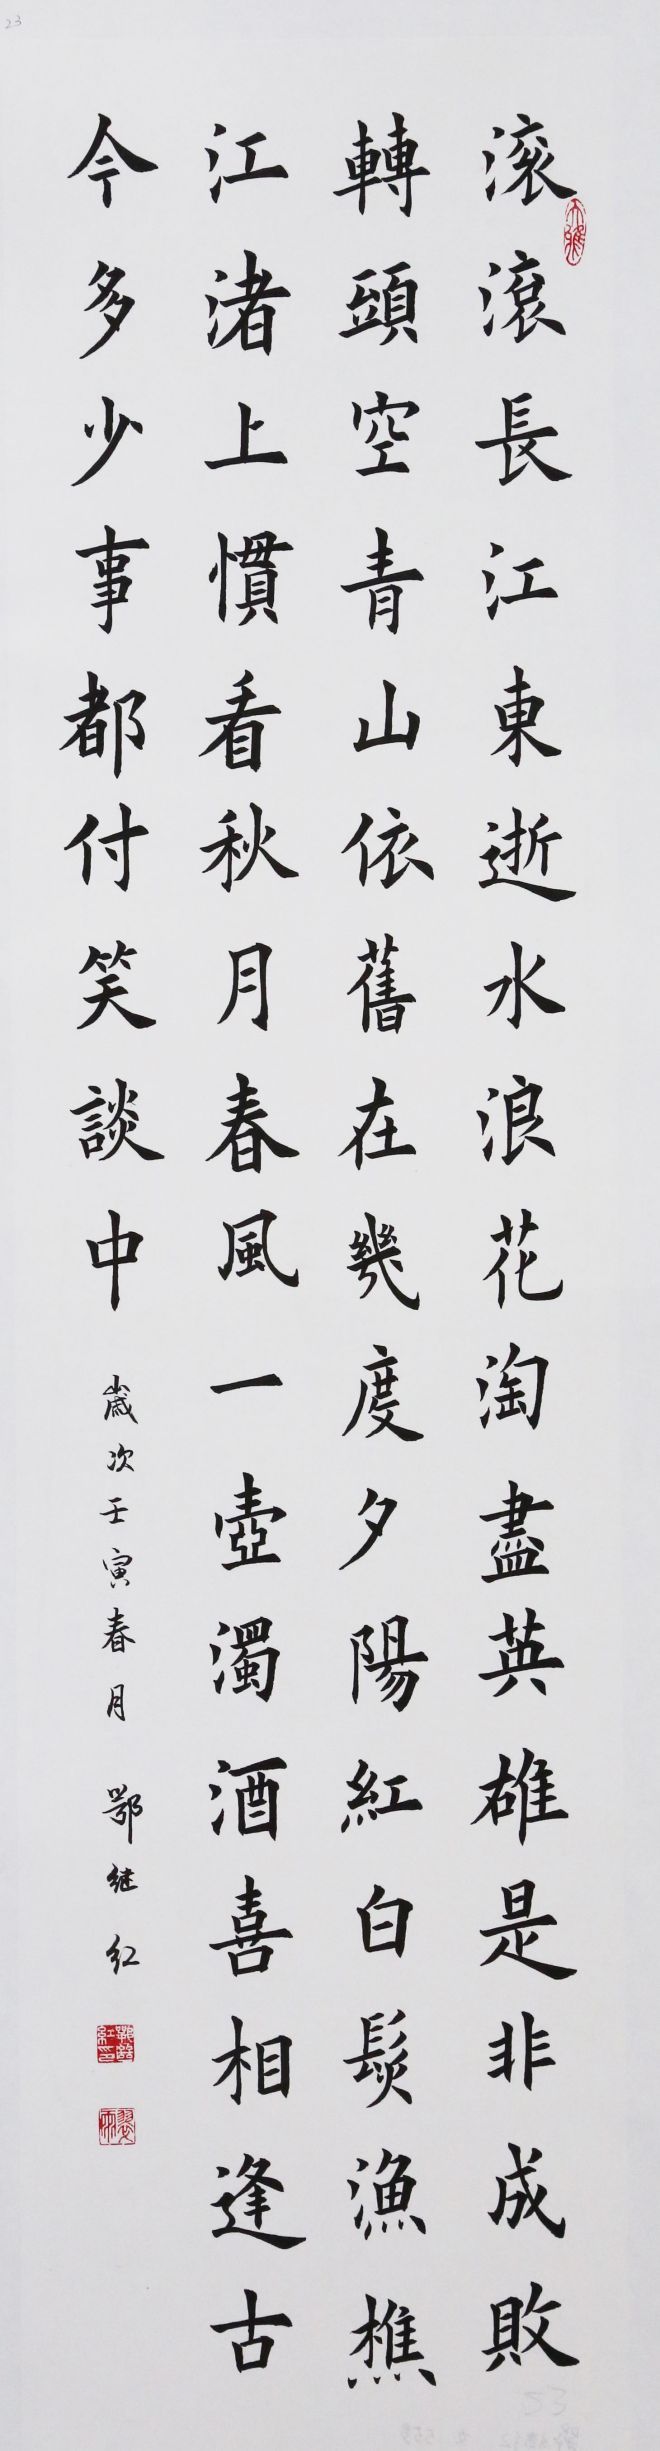 滚滾長江東逝水浪花淘盡英雄是非成敗
轉頭空青山依舊在幾度夕陽紅白髮漁樵
江渚上慣看秋月春風一壺濁酒喜相逢古
今多少事都付笑談中
歲次壬寅春月 鄂继红
23
53